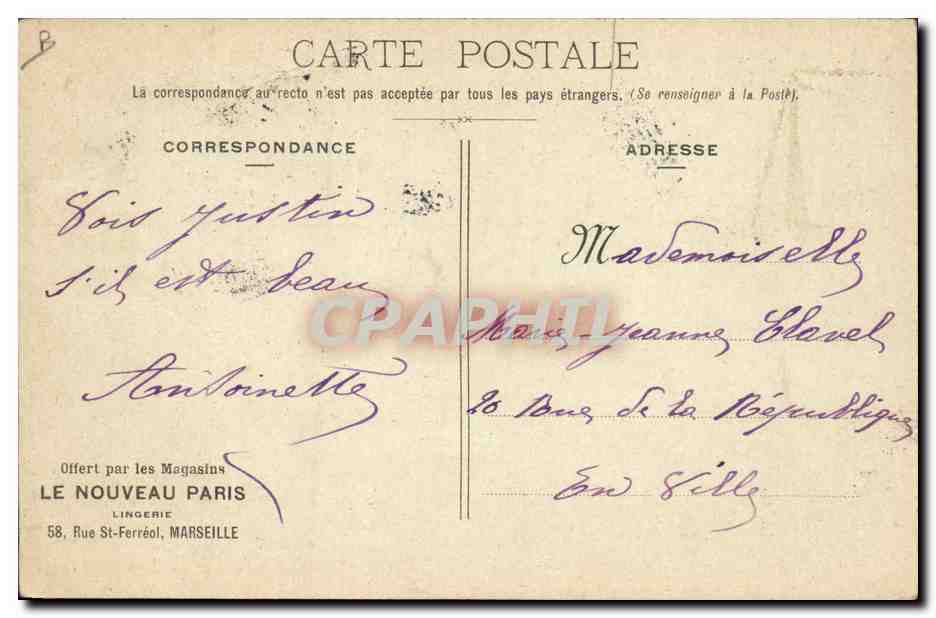 B
CARTE POSTALE
La correspondance au recto n'est pas acceptée par tous les pays étrangers. (Se renseigner à la Poste).
CORRESPONDANCE
Vois Justin
s'il est beau
Antoinette
Offert par les Magasins
LE NOUVEAU PARIS
LINGERIE
58, Rue St-Ferréol, MARSEILLE
ADRESSE
Mademoiselle
Marie-Jeanne Clavel
20 Rue de la République
En Ville
CPAPHIL